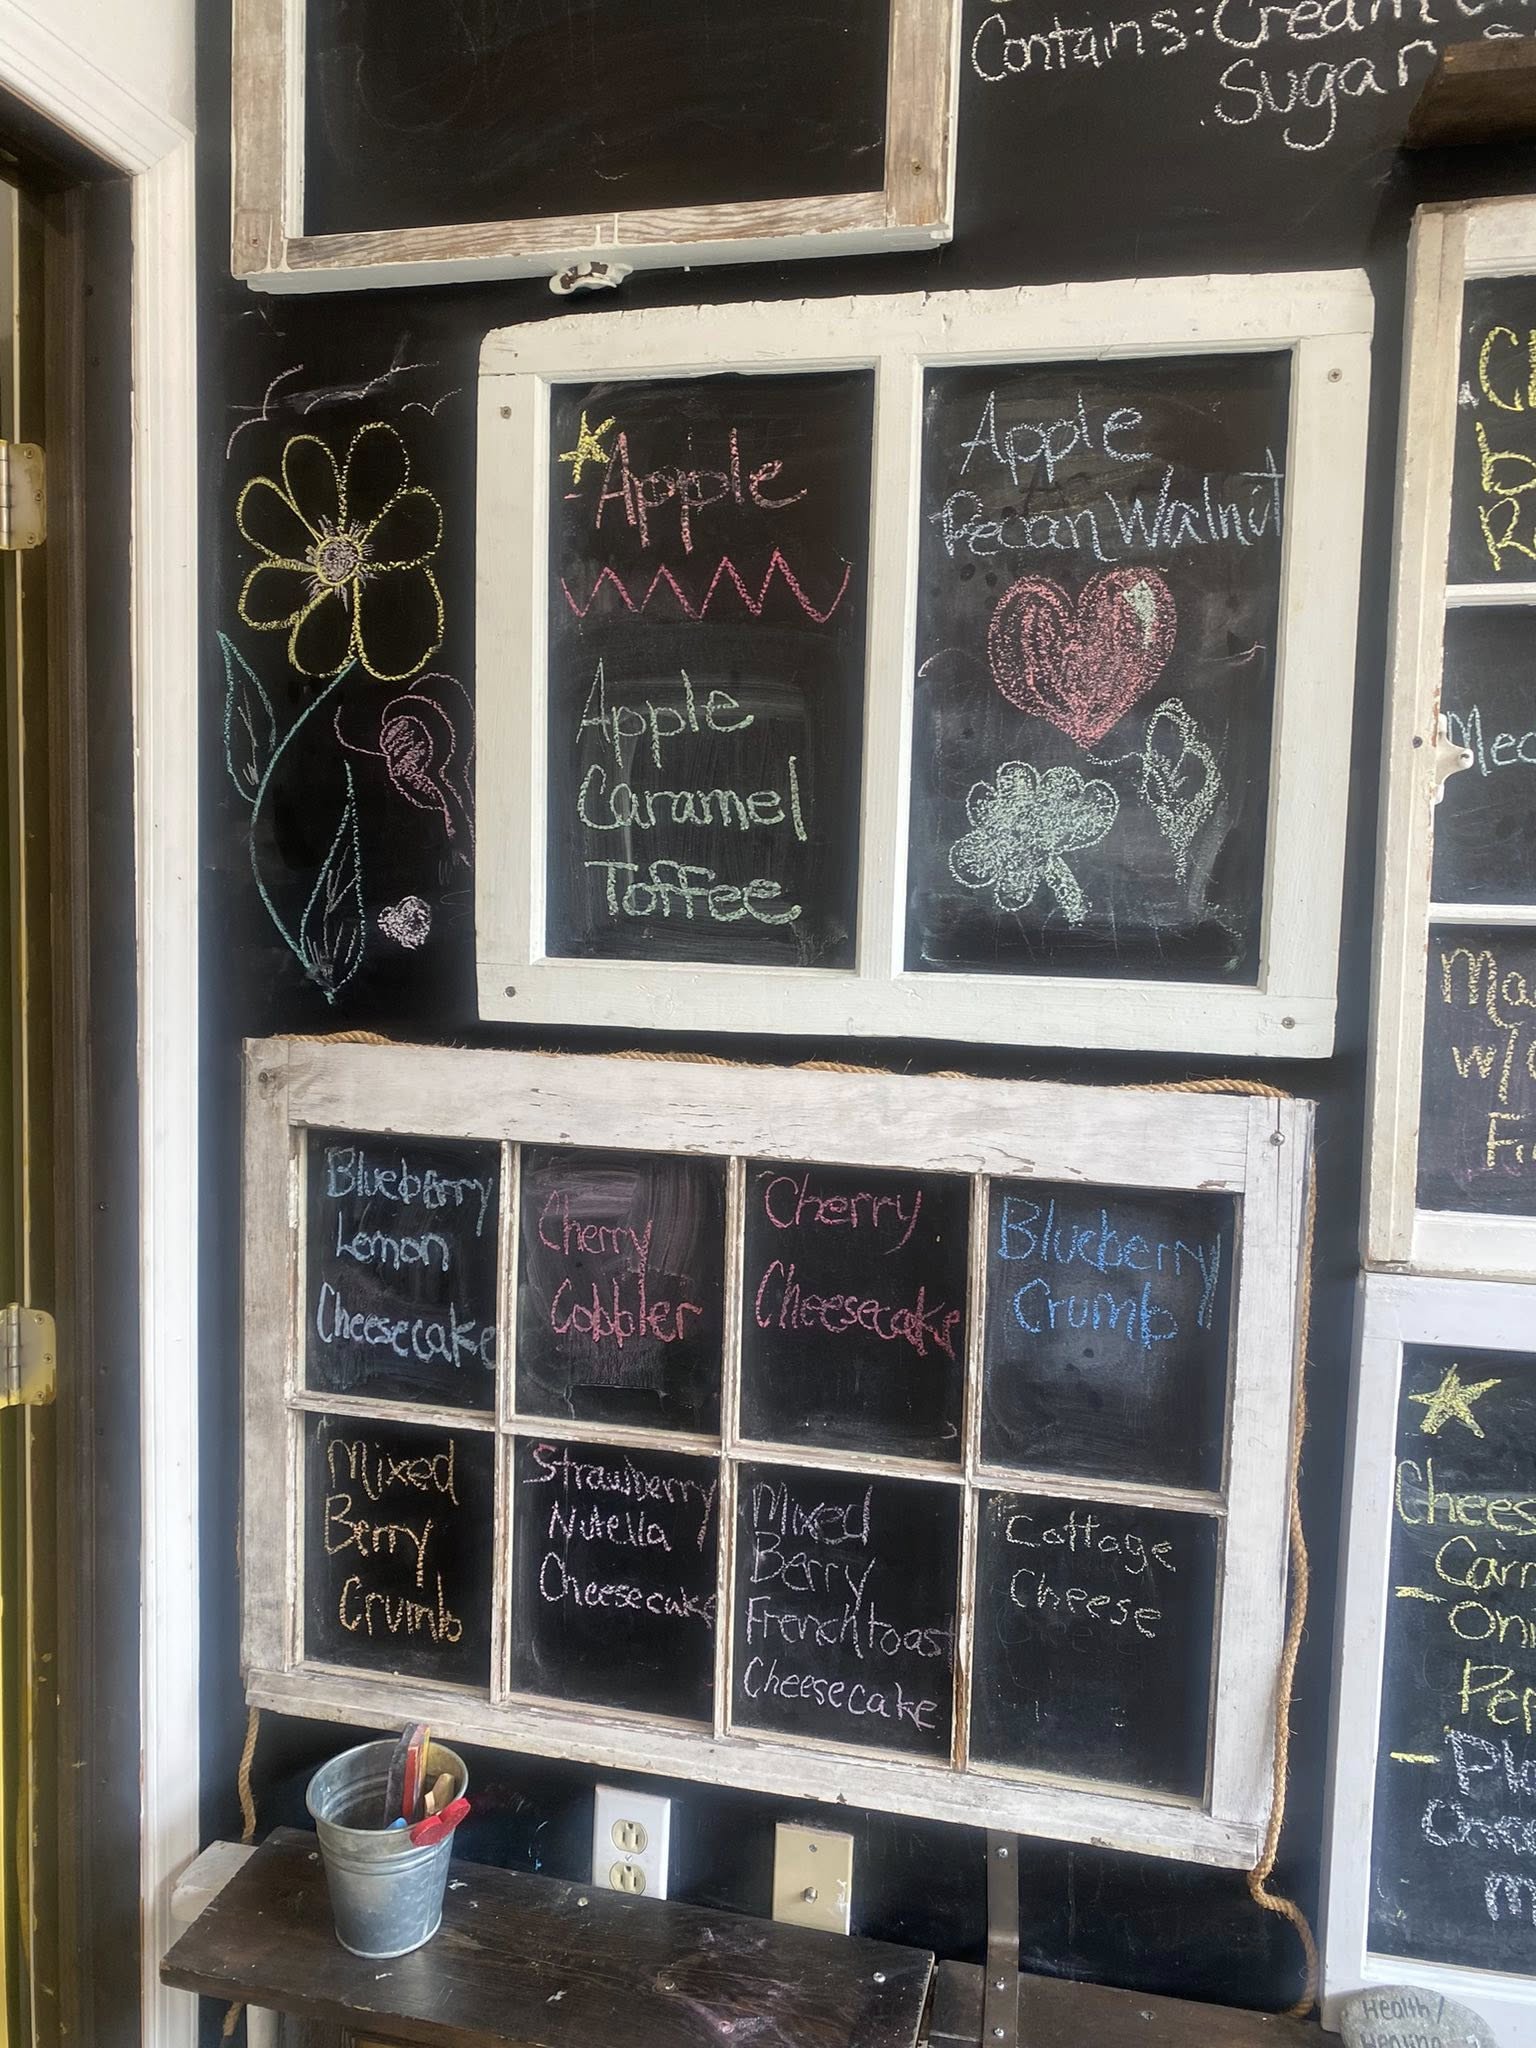 Contains: Cream
Sugar
Apple
Apple
Caramel
Toffee
Apple
Pecan Walnut
Blueberry
Lemon
Cheesecake
Cherry
Cobbler
Cherry
Cheesecake
Blueberry
Crumb
Mixed
Berry
Crumb
Strawberry
Nutella
Cheesecake
Mixed
Berry
French toast
Cheesecake
Cottage
Cheese
w/
Health/
Healing